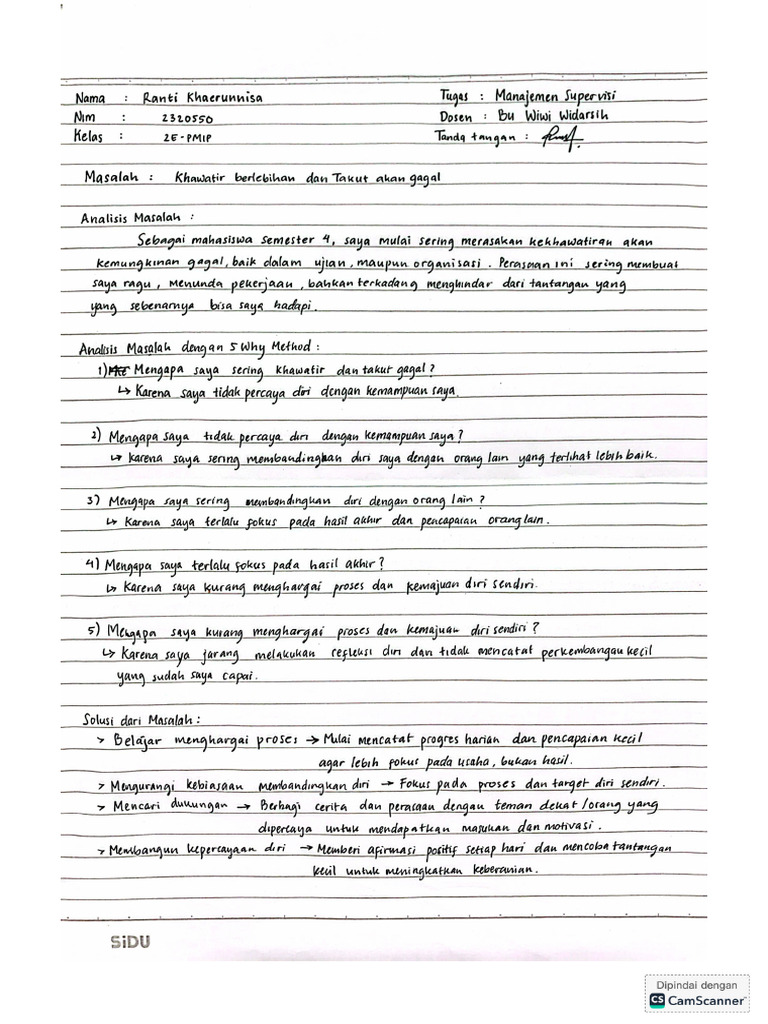 Nama : Ranti Khaerunnisa Tugas : Manajemen Supervisi
Nim : 2320550 Dosen : Bu Wiwi Widarsih
Kelas : 2E-PMIP Tanda tangan :
Masalah : Khawatir berlebihan dan Takut akan gagal
Analisis Masalah :
Sebagai mahasiswa semester 4, saya mulai sering merasakan kekhawatiran akan
kemungkinan gagal, baik dalam ujian, maupun organisasi. Perasaan ini sering membuat
saya ragu, menunda pekerjaan, bahkan terkadang menghindar dari tantangan yang
yang sebenarnya bisa saya hadapi.
Analisis Masalah dengan 5 Why Method :
1) Mengapa saya sering khawatir dan takut gagal?
↳ Karena saya tidak percaya diri dengan kemampuan saya.
2) Mengapa saya tidak percaya diri dengan kemampuan saya?
↳ Karena saya sering membandingkan diri saya dengan orang lain yang terlihat lebih baik.
3) Mengapa saya sering membandingkan diri dengan orang lain?
↳ Karena saya terlalu fokus pada hasil akhir dan pencapaian orang lain.
4) Mengapa saya terlalu fokus pada hasil akhir?
↳ Karena saya kurang menghargai proses dan kemajuan diri sendiri.
5) Mengapa saya kurang menghargai proses dan kemajuan diri sendiri?
↳ Karena saya jarang melakukan refleksi diri dan tidak mencatat perkembangan kecil
yang sudah saya capai.
Solusi dari Masalah :
> Belajar menghargai proses → Mulai mencatat progres harian dan pencapaian kecil
agar lebih fokus pada usaha, bukan hasil.
> Mengurangi kebiasaan membandingkan diri → Fokus pada proses dan target diri sendiri.
> Mencari dukungan → Berbagi cerita dan perasaan dengan teman dekat/orang yang
dipercaya untuk mendapatkan masukan dan motivasi.
> Membangun kepercayaan diri → Memberi afirmasi positif setiap hari dan mencoba tantangan
kecil untuk meningkatkan keberanian.
SiDU
Dipindai dengan
CS CamScanner